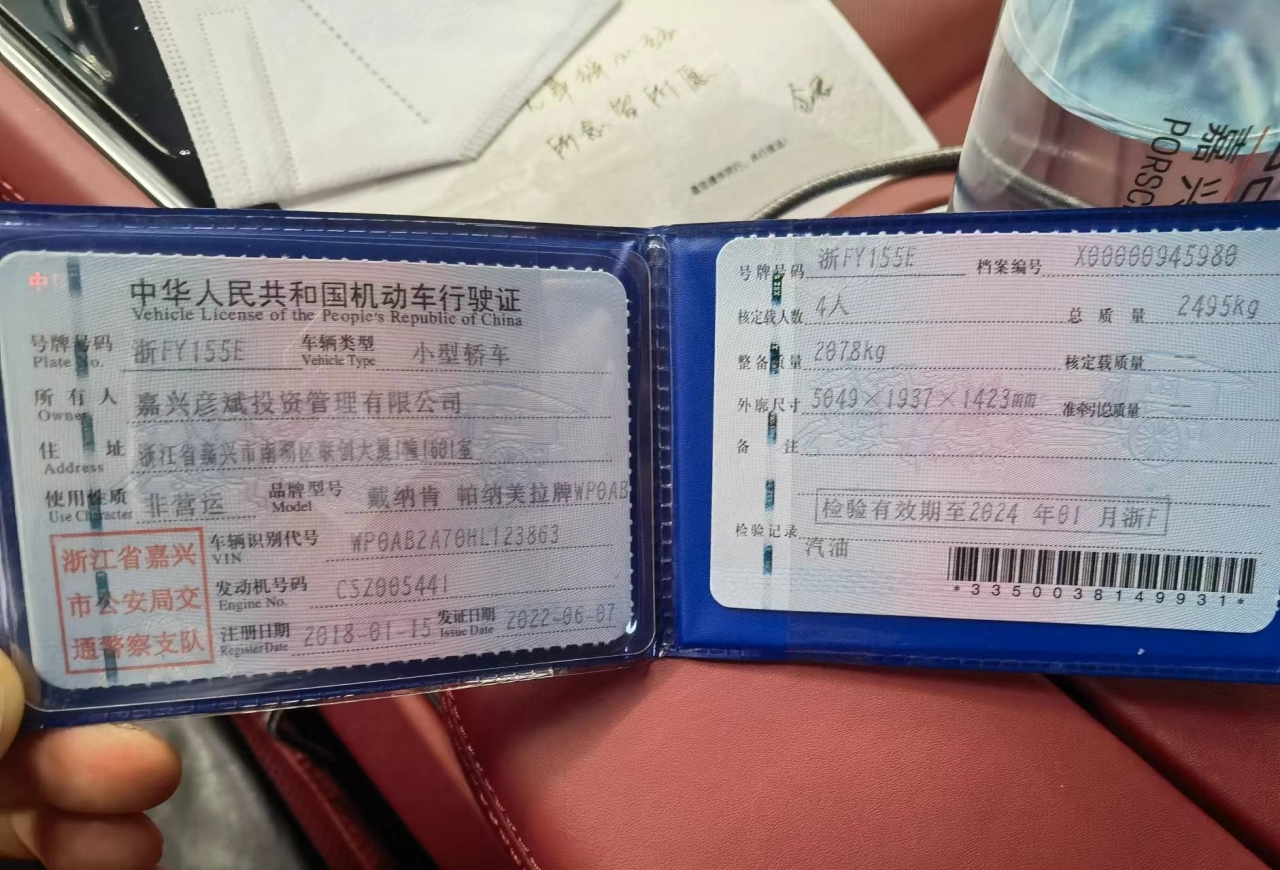 所念皆所愿
中华人民共和国机动车行驶证
Vehicle License of the People's Republic of China
号牌号码 浙FY155E 车辆类型 小型轿车
Plate No. Vehicle Type
所有人 嘉兴彦斌投资管理有限公司
Owner
住址 浙江省嘉兴市南湖区联创大厦1幢1601室
Address
使用性质 非营运 品牌型号 戴纳肯 帕纳美拉牌WP0AB
Use Character Model
浙江省嘉兴
市公安局交
通警察支队
车辆识别代号 WP0AB2A70HL123863
VIN
发动机号码 CSZ005441
Engine No.
注册日期 2018-01-15 发证日期 2022-06-07
Register Date Issue Date
号牌号码 浙FY155E 档案编号 X00000945980
核定载人数 4人 总质量 2495kg
整备质量 2078kg 核定载质量 --
外廓尺寸 5049×1937×1423mm 准牵引总质量 --
备注
检验有效期至2024年01月浙F
检验记录
汽油
*3350038149931*
嘉兴
PORSC